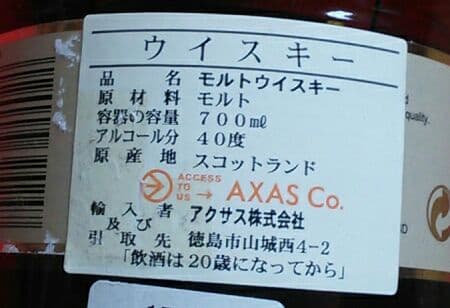 ウイスキー
品名 モルトウイスキー
原材料 モルト
容器の容量 700mℓ
アルコール分 40度
原産地 スコットランド
ACCESS TO US → AXAS Co.
輸入者 アクサス株式会社
及び
引取先 徳島市山城西4-2
「飲酒は20歳になってから」
quality.